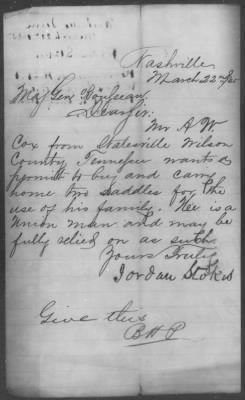 Nashville
March 22nd/65
Maj Gen Rousseau
Dear Sir:
Mr A. W.
Cox from Statesville Wilson
County, Tennessee wants a
permit to buy and carry
home two saddles for the
use of his family. He is a
Union man and may be
fully relied on as such
Yours Truly
Jordan Stokes
Give this